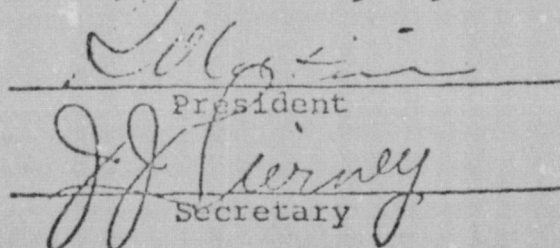 President
J. J. Tierney
Secretary